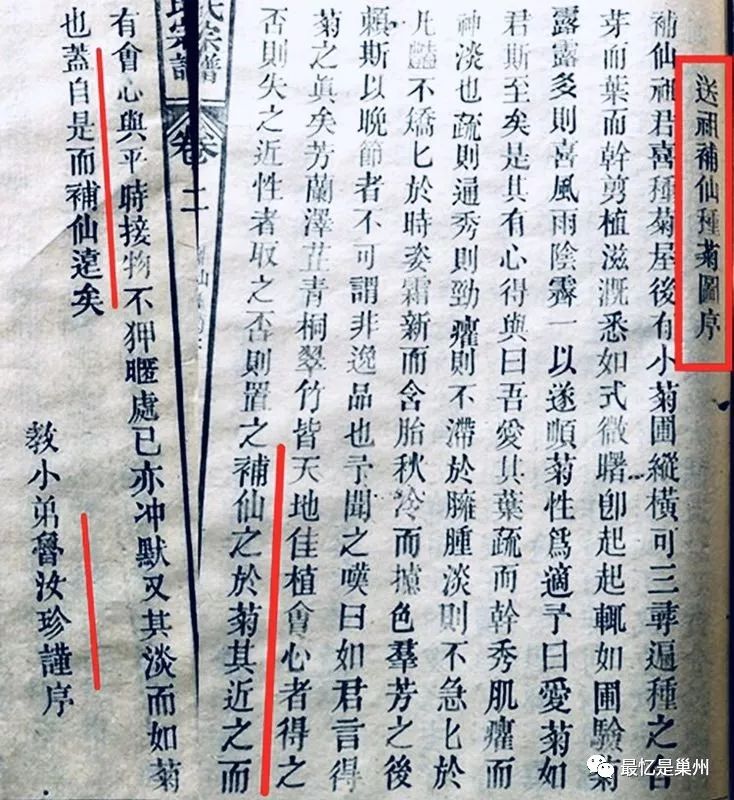 送祖補仙種菊圖序
補仙祖君喜種菊屋後有小菊圃縱橫可三尋遍種之
芽而葉而幹剪植滋溉悉如式微曙卽起起輒如圃驗菊
露露多則喜風雨陰霽一以遂順菊性爲適予曰愛菊如
君斯至矣是其有心得與曰吾愛其葉疏而幹秀肌癯而
神淡也疏則通秀則勁癯則不滯於臃腫淡則不急匕於
凡豔不矯匕於時姿霜新而含胎秋冷而攄色羣芳之後
賴斯以晚節者不可謂非逸品也予聞之嘆曰如君言得
菊之眞矣芳蘭澤芷青桐翠竹皆天地佳植會心者得之
否則失之近性者取之否則置之補仙之於菊其近之而
氏宗譜
卷二
有會心與平時接物不狎暱處已亦冲默又其淡而如菊
也蓋自是而補仙遠矣
教小弟魯汝珍謹序
最忆是巢州